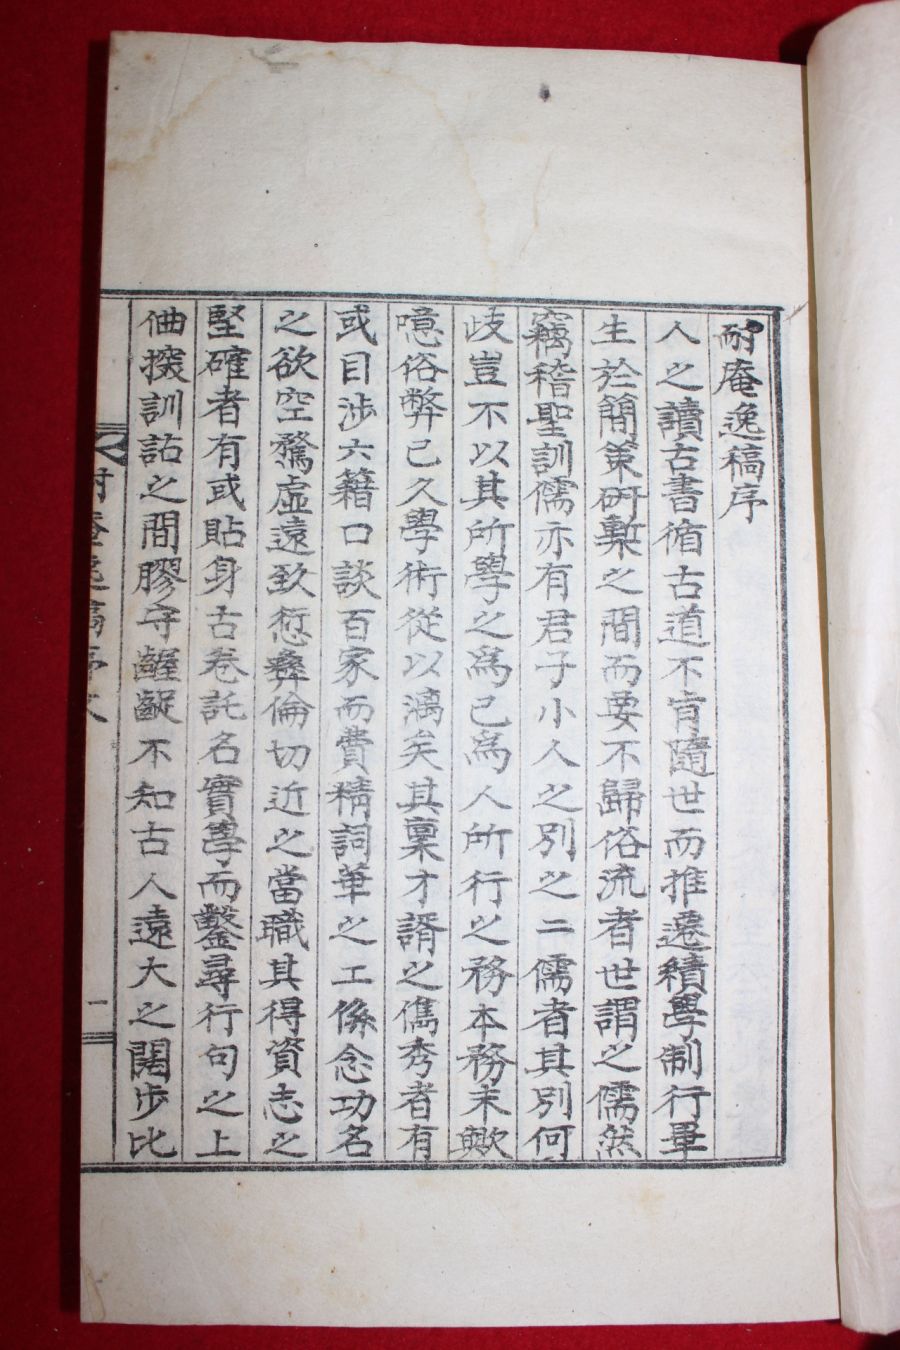 耐庵逸稿序
人之讀古書循古道不肯隨世而推遷積學制行畢
生於簡策硏槧之間而要不歸俗流者世謂之儒然
竊稽聖訓儒亦有君子小人之別之二儒者其別何
歧豈不以其所學之爲己爲人所行之務本務末歟
噫俗弊已久學術從以漓矣其稟才諝之儁秀者有
或目涉六籍口談百家而費精詞華之工係念功名
之欲空騖虛遠致愆彝倫切近之當職其得資志之
堅確者有或貼身古卷託名實學而鑿尋行句之上
佃搜訓詁之間膠守齷齪不知古人遠大之闊步比
耐庵逸稿序文
一